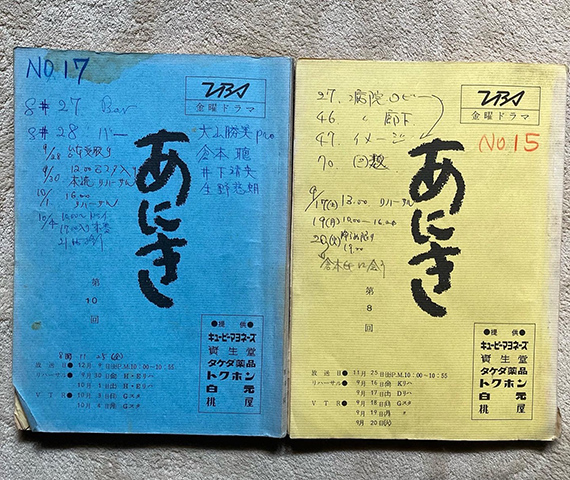 NO.17
TBS
金曜ドラマ
8# 27. Bar
8# 28. バー
大山勝美 pro
倉本聰
井下靖央
生野慈朗
9/28
9/30 12.00
本流 リハーサル
10/1 16.00
リハーサル
10/4
あにき
第
10
回
●提供●
キューピーマヨネーズ
資生堂
タケダ薬品
トクホン
白元
桃屋
放送日●12月9日(金)P.M.10:00~10:55
リハーサル●9月30日(金)H・Eリハ
10月1日(土)H・Eリハ
VTR●10月3日(月)Gスタ
10月4日(火)Gスタ
TBS
金曜ドラマ
27. 病院ロビー
46. 〃 廊下
47. イメージ
70. 回数
NO.15
9/17(土) 13.00 リハーサル
19(月) 10.00-16.00
20(火)
19.00
倉本氏に会う
あにき
第
8
回
●提供●
キューピーマヨネーズ
資生堂
タケダ薬品
トクホン
白元
桃屋
放送日●11月25日(金)P.M.10:00~10:55
リハーサル●9月16日(金)Kリハ
9月17日(土)Dリハ
VTR●9月18日(日)Gスタ
9月19日(月) 〃
9月20日(火)